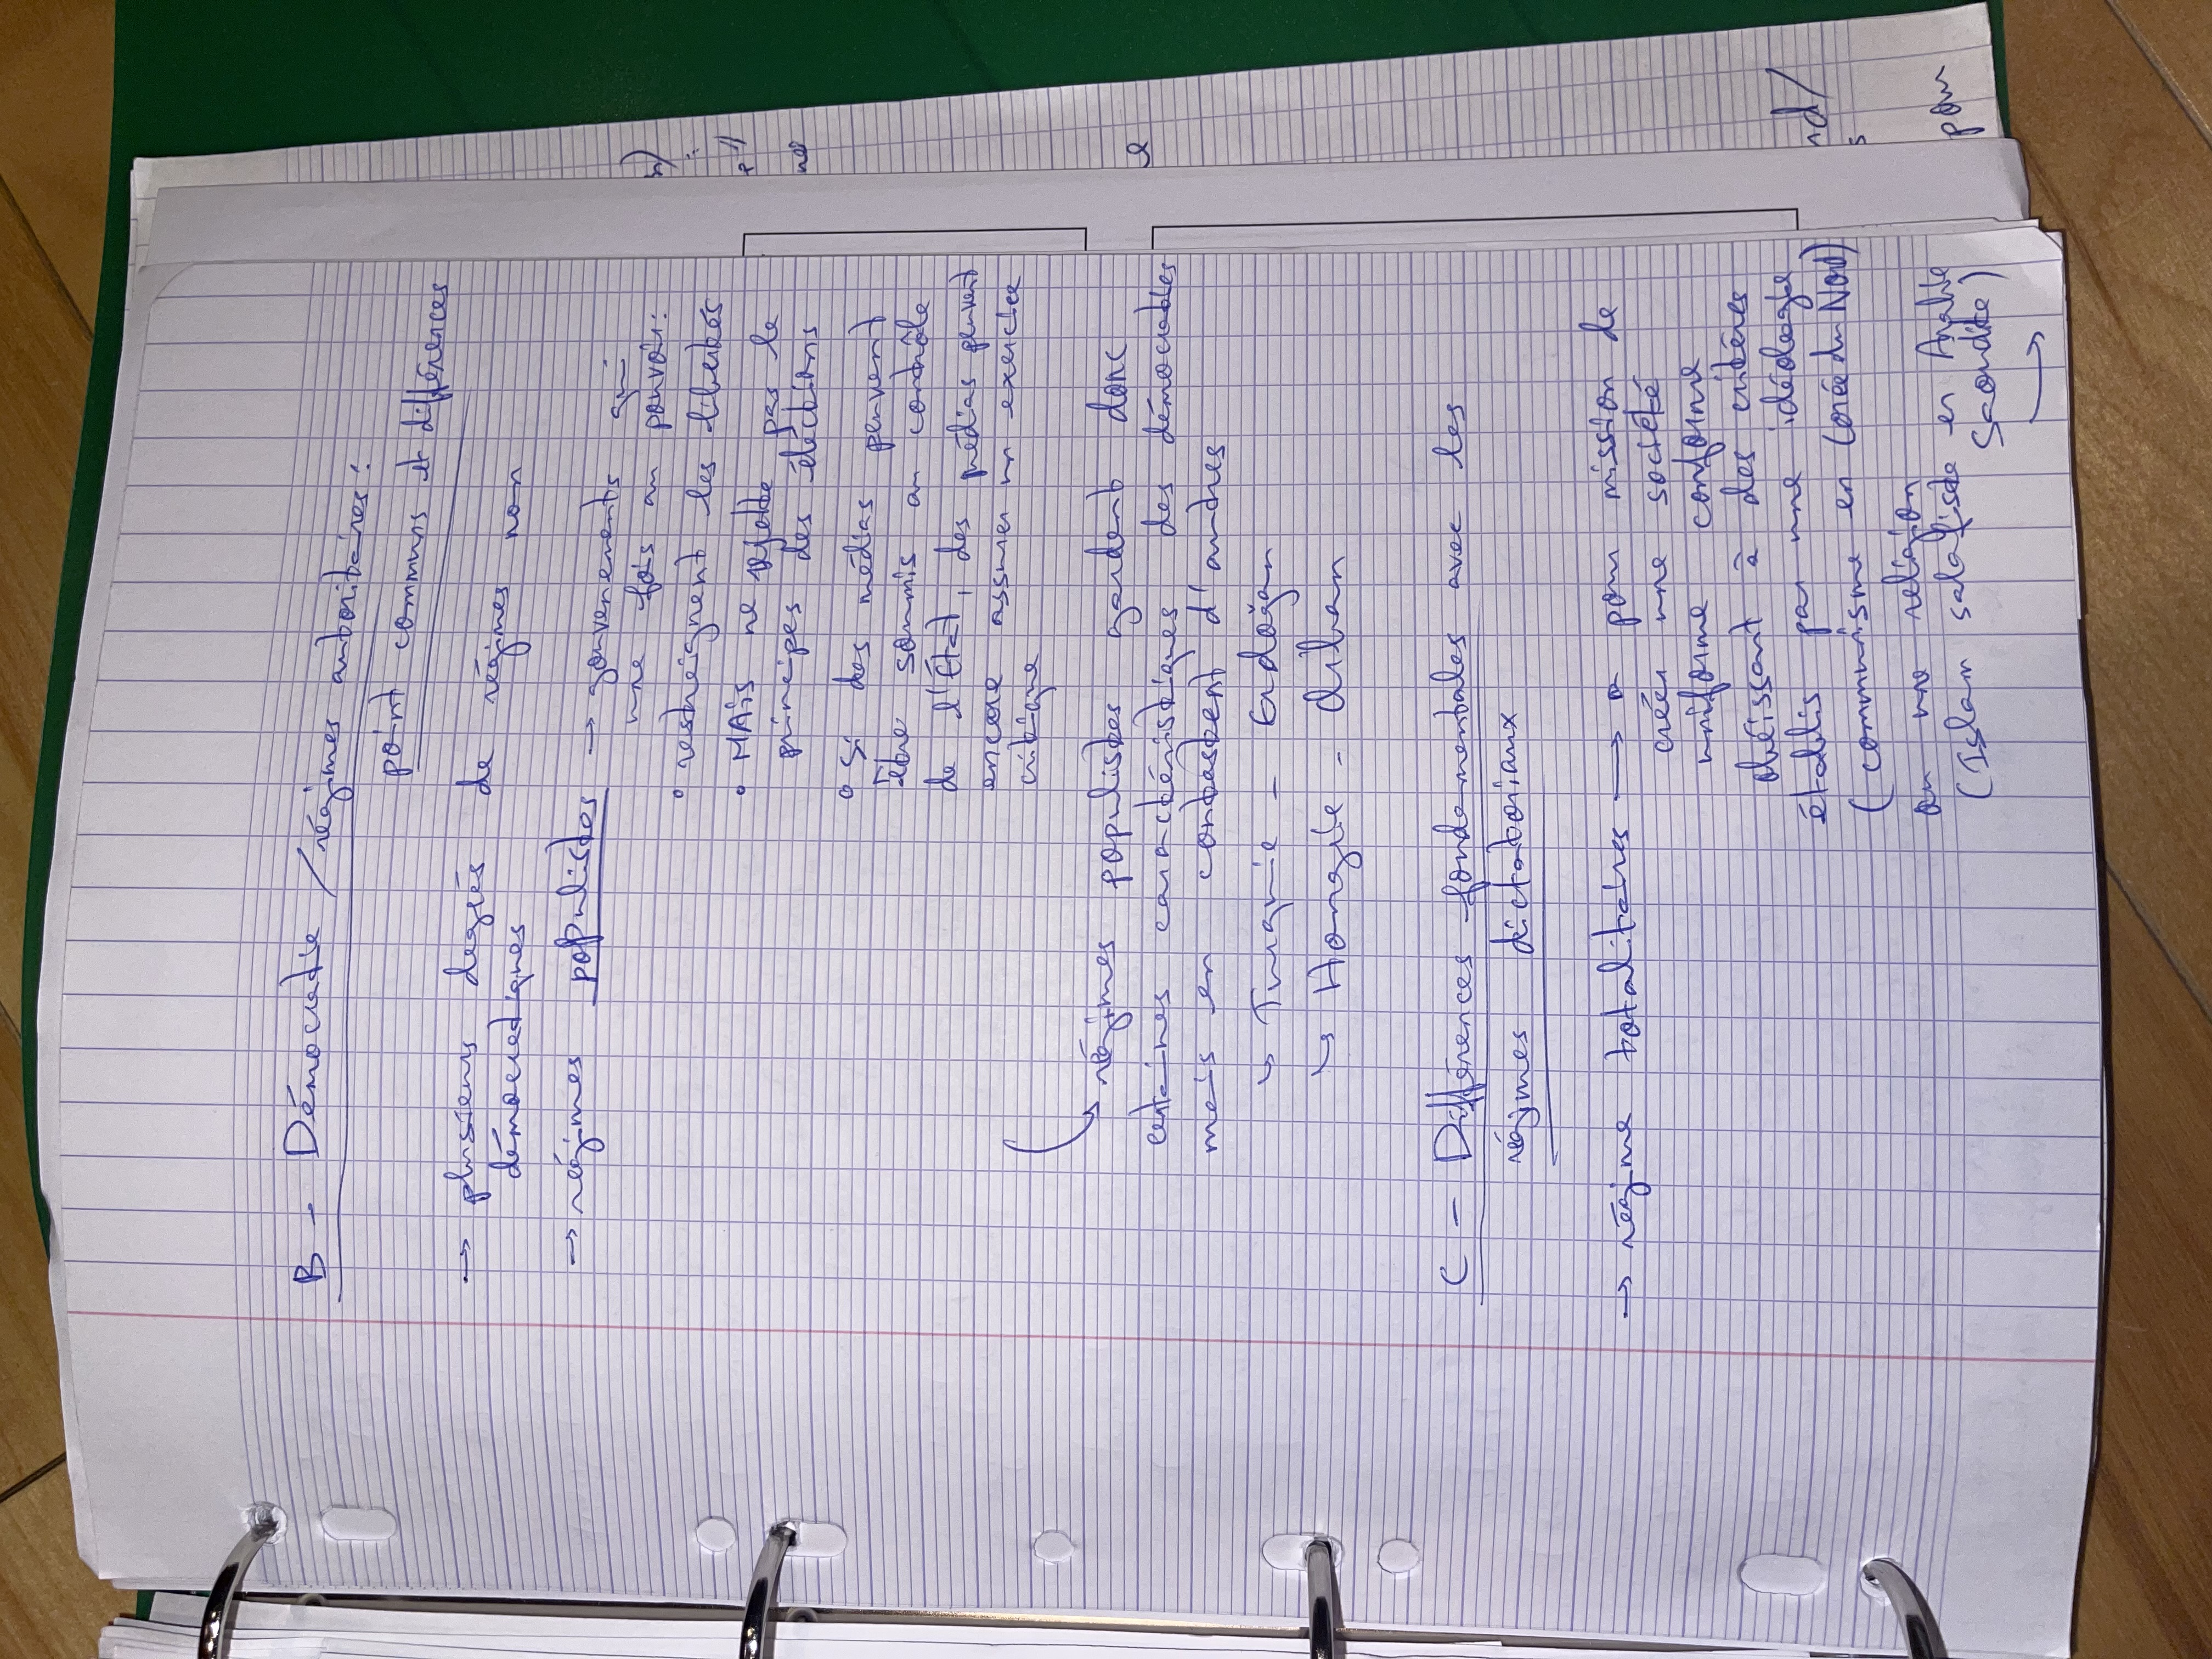 B - Démocratie / régimes autoritaires :
point communs et différences
→ plusieurs degrés de régimes non
démocratiques
→ régimes populistes → gouvenements qui
une fois au pouvoir :
• restreignent les libertés
• MAis ne rejette pas le
principes des élections
• Si des médias peuvent
être soumis au contrôle
de l'État, des médias peuvent
encore assurer un exercice
critique
→ régimes populistes gardent donc
certaines caractéristiques des démocraties
mais en contastent d'autres
↳ Turquie - Erdoğan
↳ Hongrie - Orban
C - Différences fondamentales avec les
régimes dictatoriaux
→ régime totalitaires → a pour mission de
créer une société
uniforme conforme
obéissant à des critères
établis par une idéologie
(communisme en Corée du Nord)
ou une religion
(Islam salafiste en Arabie
Saoudite)
→
nd/
s
pour